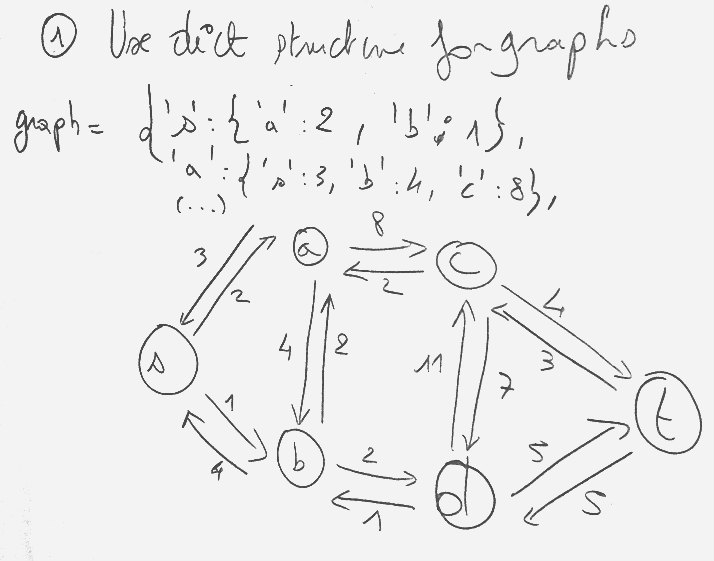 ① Use dict structure for graphs
graph = {'s': {'a': 2, 'b': 1},
'a': {'s': 3, 'b': 4, 'c': 8},
(...)
8
3
a
c
2
2
4
s
4
2
11
7
3
t
1
b
2
5
4
d
1
5